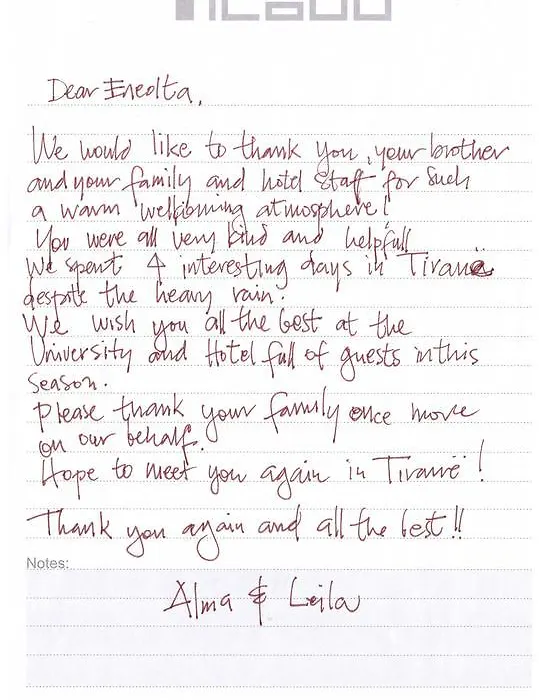 Dear Eneolta,
We would like to thank you, your brother
and your family and hotel staff for such
a warm wellcoming atmosphere!
You were all very kind and helpfull
We spent 4 interesting days in Tiranë
despite the heavy rain.
We wish you all the best at the
University and Hotel full of guests in this
season.
Please thank your family once more
on our behalf.
Hope to meet you again in Tiranë!
Thank you again and all the best!!
Notes:
Alma & Leila